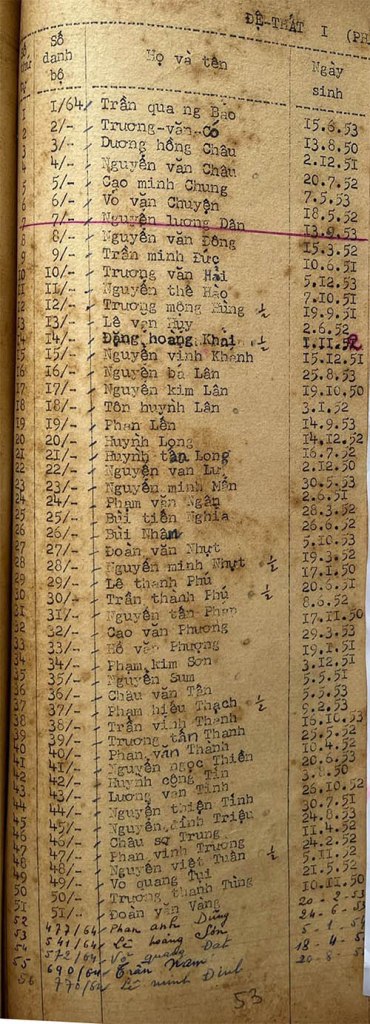 ĐỆ-THẤT I (PH
Số thứ tự Số danh bộ Họ và tên Ngày sinh
1 1/64 Trần quang Bảo 15.8.53
2 2/- Trương-văn-Có 13.8.50
3 3/- Dương hồng Châu 2.12.51
4 4/- Nguyễn văn Châu 20.7.52
5 5/- Cao minh Chung 7.5.53
6 6/- Võ văn Chuyện 18.5.52
7 7/- Nguyễn lương Dân 13.9.53
8 8/- Nguyễn văn Đông 15.3.52
9 9/- Trần minh Đức 10.6.51
10 10/- Trương văn Hải 5.12.53
11 11/- Nguyễn thế Hào 7.10.51
12 12/- Trương mộng Hùng ½ 19.9.51
13 13/- Lê văn Huy 2.6.52
14 14/- Đặng hoàng Khải ½ 1.11.52
15 15/- Nguyễn vĩnh Khánh 15.12.51
16 16/- Nguyễn bá Lân 25.8.53
17 17/- Nguyễn kim Lân 19.10.50
18 18/- Tôn huỳnh Lân 3.1.52
19 19/- Phan Lến 14.9.53
20 20/- Huỳnh Long 14.12.52
21 21/- Huỳnh tân Long 16.7.52
22 22/- Nguyễn văn Lư 2.12.50
23 23/- Nguyễn minh Mẫn 30.5.53
24 24/- Phạm văn Ngân 2.6.51
25 25/- Bùi tiến Nghĩa 28.3.52
26 26/- Bùi Nhâm 26.6.52
27 27/- Đoàn văn Nhựt 5.10.53
28 28/- Nguyễn minh Nhựt ½ 19.3.52
29 29/- Lê thanh Phú 17.1.50
30 30/- Trần thanh Phú ½ 20.6.51
31 31/- Nguyễn tấn Phan 8.6.52
32 32/- Cao văn Phương 17.11.50
33 33/- Hồ văn Phượng 29.3.53
34 34/- Phạm kim Sơn 19.1.51
35 35/- Nguyễn Sum 3.12.51
36 36/- Châu văn Tân 5.5.51
37 37/- Phạm hiếu Thạch ½ 5.5.53
38 38/- Trần vĩnh Thanh 9.2.53
39 39/- Trương tấn Thanh 16.10.53
40 40/- Phan văn Thanh 25.5.52
41 41/- Nguyễn ngọc Thiên 10.4.52
42 42/- Huỳnh công Tín 20.6.53
43 43/- Lương văn Tính 3.8.50
44 44/- Nguyễn thiện Tính 26.10.52
45 45/- Nguyễn đình Triệu 30.7.51
46 46/- Châu sơ Trung 24.8.53
47 47/- Phan vinh Trương 11.4.52
48 48/- Nguyễn việt Tuấn ½ 24.2.52
49 49/- Võ quang Tụi 5.11.52
50 50/- Trương thanh Tùng 21.5.52
51 51/- Đoàn văn Vàng 10.11.50
52 477/64 Phan anh Dũng 20-2-53
53 541/64 Lê hoàng Sơn 24-6-53
54 572/64 Võ quang Đạt 5-1-54
55 690/64 Trần Nam 18-4-5
56 770/64 Lê minh Định 20-8-5
53